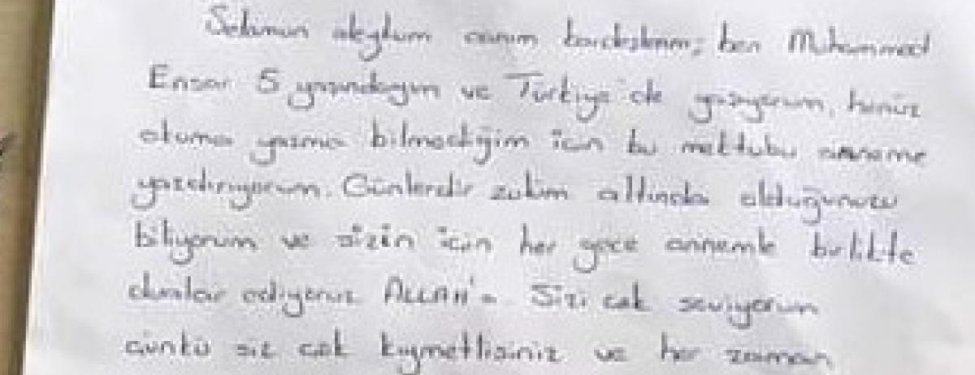 Selamun aleykum canım kardeşlerim, ben Muhammed
Ensar 5 yaşındayım ve Türkiye'de yaşıyorum, henüz
okuma yazma bilmediğim için bu mektubu anneme
yazdırıyorum. Günlerdir zulüm altında olduğunuzu
biliyorum ve sizin için her gece annemle birlikte
dualar ediyoruz ALLAH'a. Sizi çok seviyorum
çünkü siz çok kıymetlisiniz ve her zaman